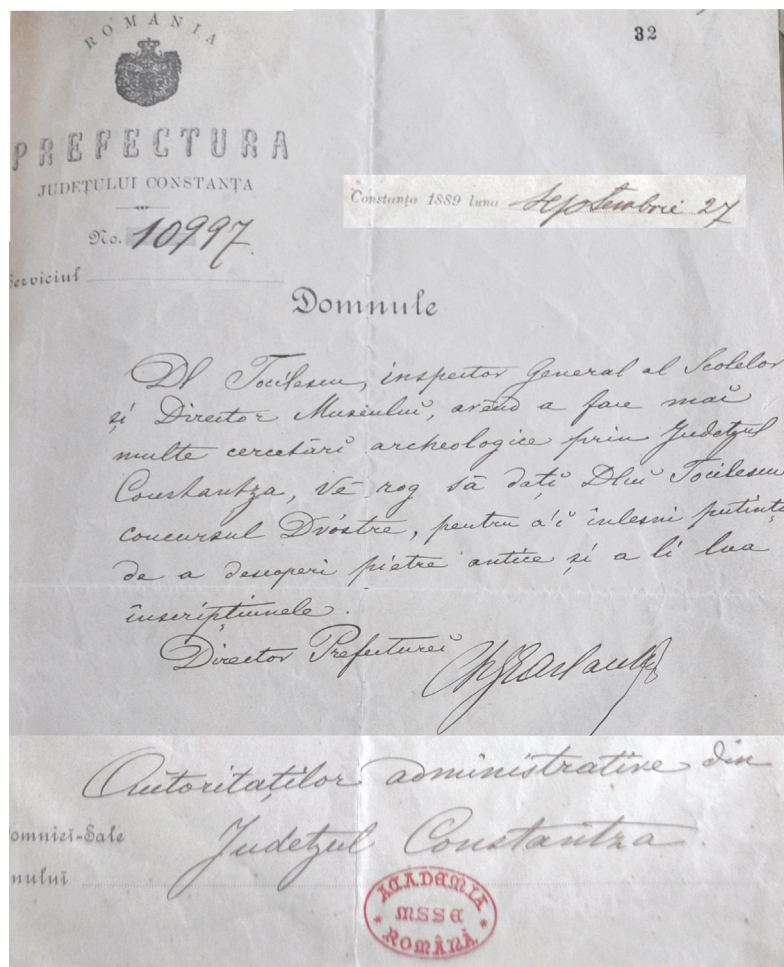 32
ROMÂNIA
PREFECTURA
JUDEȚULUI CONSTANȚA
No. 10997.
Serviciul
Constanța 1889 luna Septembrie 27
Domnule
Dl Tocilescu, inspector General al Scolelor
și Director Museului, avênd a face mai
multe cercetări archeologice prin Judetzul
Constantza, Vĕ rog să dați Dlui Tocilescu
concursul Dvóstre, pentru a'ĭ înlesni putința
de a descoperi pietre antice și a li lua
inscripțiunele.
Director Prefecturei
Autorităților administrative din
Domniei-Sale Judetzul Constantza.
nului
ACADEMIA
MSSE
ROMÂNĂ